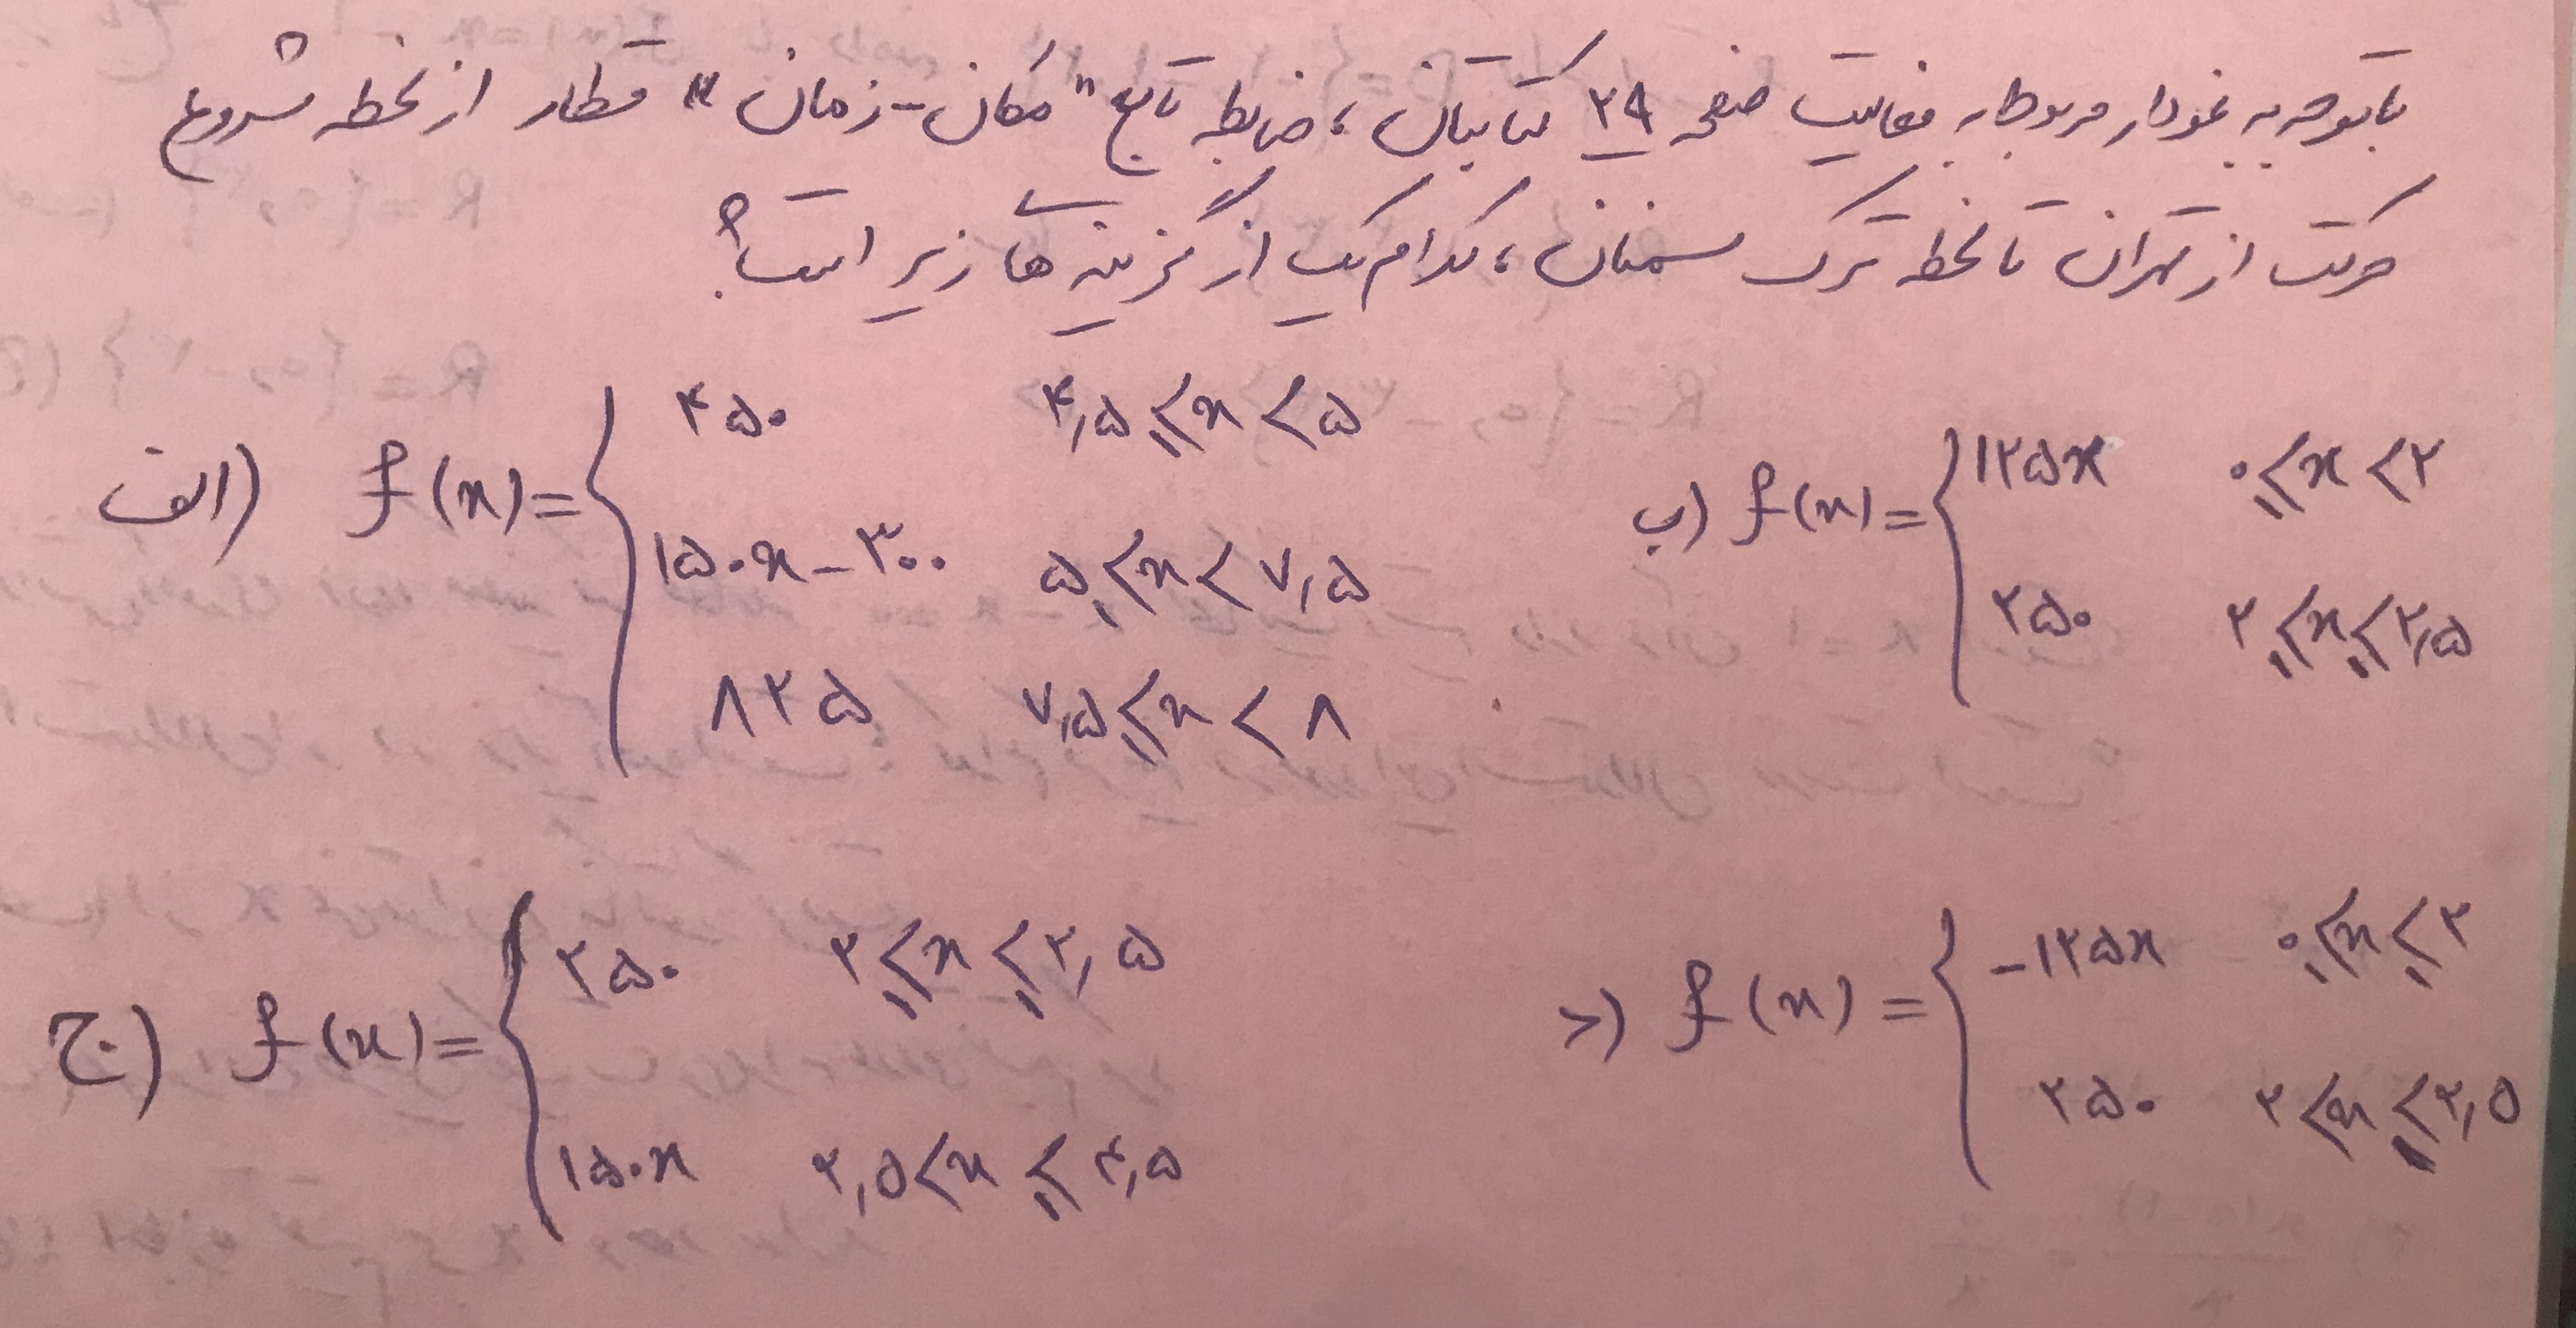 با توجه به نمودار مربوط به فعالیت صفحه ۲۹ کتابتان، ضابطه تابع "مکان-زمان" قطار از لحظه شروع
حرکت از تهران تا لحظه ترک سمنان، کدام یک از گزینه های زیر است؟
الف) f(x)= { ۴۵۰ ۴,۵≤x<۵
۱۵۰x-۳۰۰ ۵≤x<۷,۵
۸۲۵ ۷,۵≤x<۸
ب) f(x)= { ۱۲۵x ۰≤x<۲
۲۵۰ ۲≤x≤۲,۵
ج) f(x)= { ۲۵۰ ۲≤x≤۲,۵
۱۵۰x ۲,۵<x≤۴,۵
د) f(x)= { -۱۲۵x ۰≤x≤۲
۲۵۰ ۲<x≤۲,۵